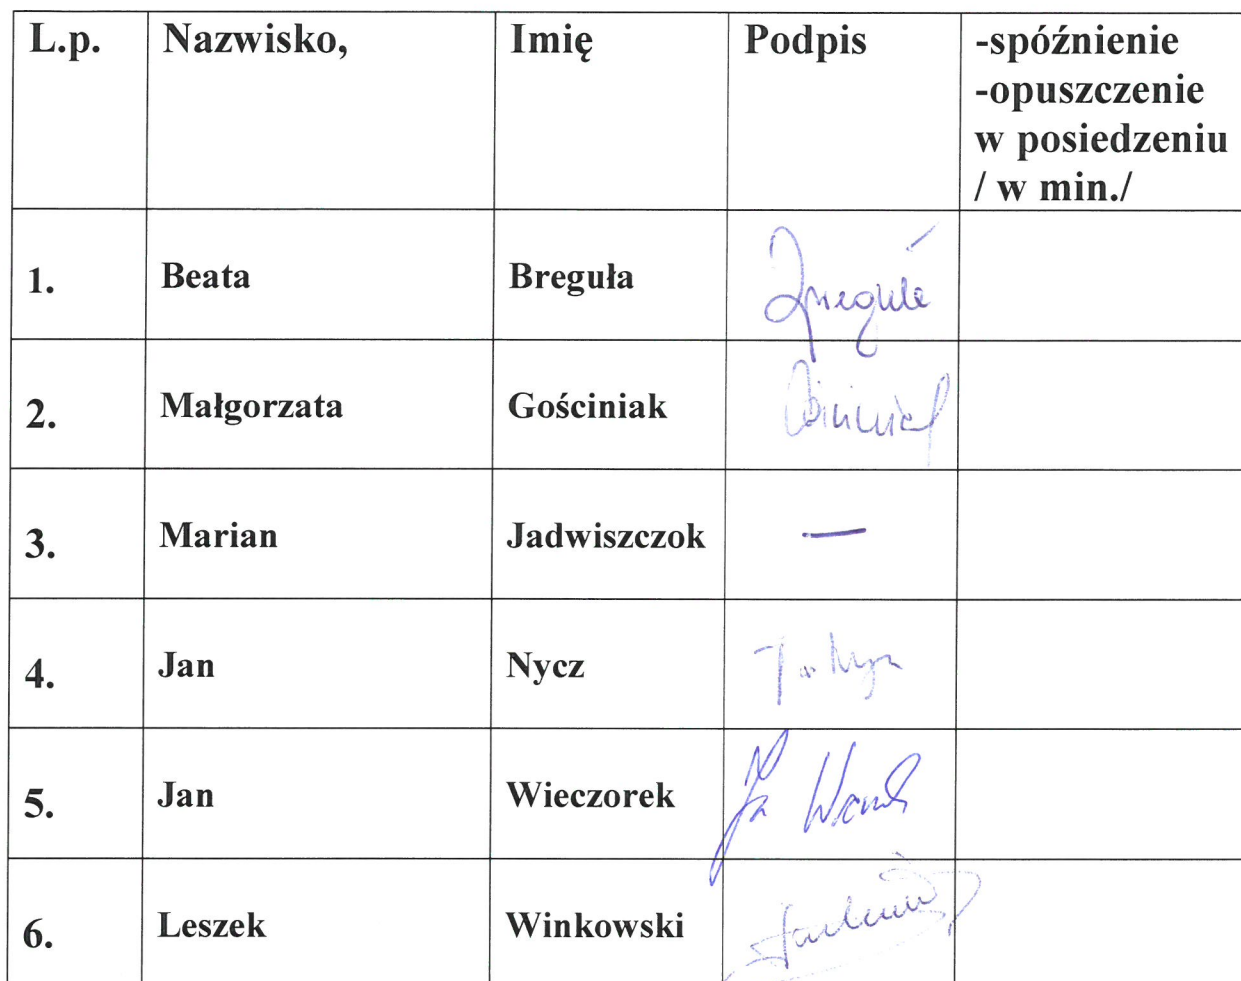 L.p. Nazwisko, Imię Podpis -spóźnienie
-opuszczenie
w posiedzeniu
/ w min./
1. Beata Breguła
2. Małgorzata Gościniak
3. Marian Jadwiszczok —
4. Jan Nycz
5. Jan Wieczorek
6. Leszek Winkowski